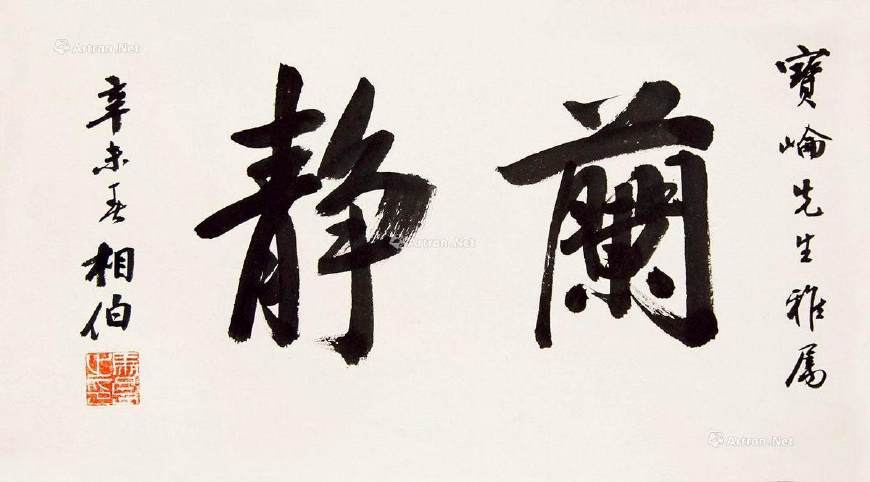 寶崘先生雅屬
蘭靜
辛未春 相伯
Artron.Net
Artron.Net
Artron.Net